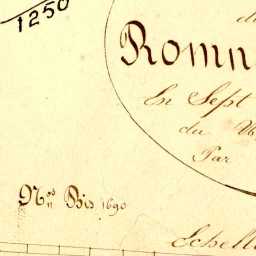 1250
du
Romn
En Sept
du
Par
Nos 11 Bis 1690
Echelle